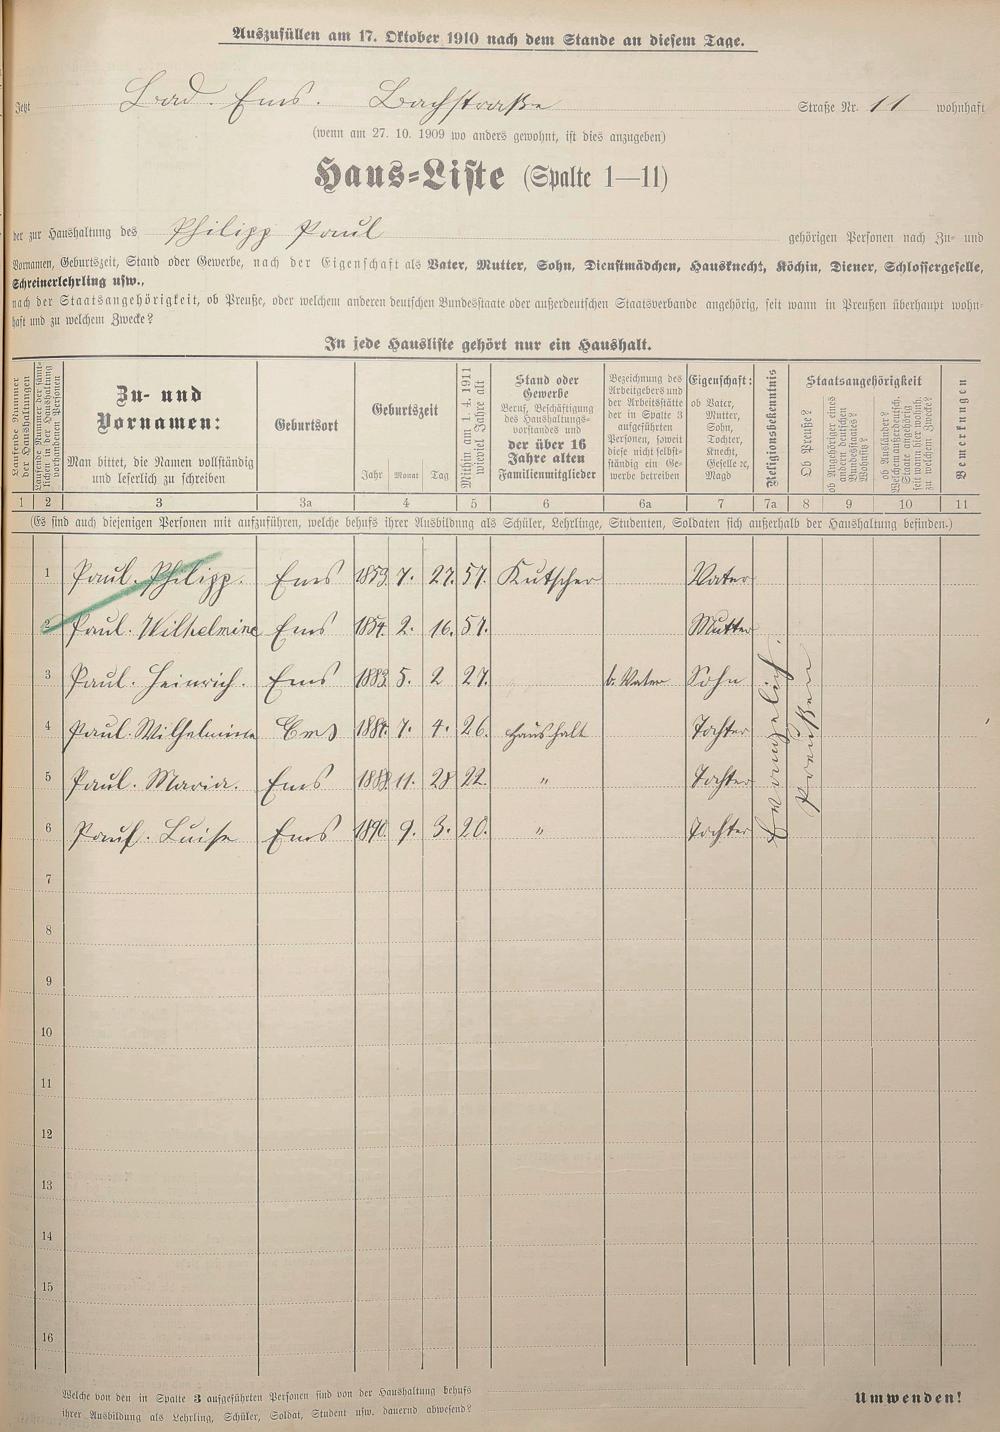 Auszufüllen am 17. Oktober 1910 nach dem Stande an diesem Tage.
Jetzt Bad. Ems. Bachstraße Straße Nr. 11 wohnhaft
(wenn am 27. 10. 1909 wo anders gewohnt, ist dies anzugeben)
Haus=Liste (Spalte 1—11)
der zur Haushaltung des Philipp Paul gehörigen Personen nach Zu- und
Vornamen, Geburtszeit, Stand oder Gewerbe, nach der Eigenschaft als Vater, Mutter, Sohn, Dienstmädchen, Hausknecht, Köchin, Diener, Schlossergeselle,
Schreinerlehrling usw.,
nach der Staatsangehörigkeit, ob Preuße, oder welchem anderen deutschen Bundesstaate oder außerdeutschen Staatsverbande angehörig, seit wann in Preußen überhaupt wohn-
haft und zu welchem Zwecke?
In jede Hausliste gehört nur ein Haushalt.
Laufende Nummer
der Haushaltungen
Laufende Nummer der sämt-
lichen in der Haushaltung
vorhandenen Personen
Zu- und
Vornamen:
Man bittet, die Namen vollständig
und leserlich zu schreiben
Geburtsort
Geburtszeit
Jahr Monat Tag
Mithin am 1. 4. 1911
wieviel Jahre alt
Stand oder
Gewerbe
Beruf, Beschäftigung
des Haushaltungs-
vorstandes und
der über 16
Jahre alten
Familienmitglieder
Bezeichnung des
Arbeitgebers und
der Arbeitsstätte
der in Spalte 3
aufgeführten
Personen, soweit
diese nicht selbst-
ständig ein Ge-
werbe betreiben
Eigenschaft:
ob Vater,
Mutter,
Sohn,
Tochter,
Knecht,
Geselle ec,
Magd
Religionsbekenntnis
Staatsangehörigkeit
Ob Preuße?
ob Angehöriger eines
andern deutschen
Bundesstaates?
Wohnsitz?
ob Ausländer?
Welchem außerdeutsch.
Staate angehörig
seit wann hier wohnh.
zu welchem Zwecke?
Bemerkungen
1 2 3 3a 4 5 6 6a 7 7a 8 9 10 11
(Es sind auch diejenigen Personen mit aufzuführen, welche behufs ihrer Ausbildung als Schüler, Lehrlinge, Studenten, Soldaten sich außerhalb der Haushaltung befinden.)
1 Paul. Philipp. Ems 1853. 7. 27. 57. Kutscher Vater
2 Paul. Wilhelmine Ems 1854. 2. 16. 57. Mutter
3 Paul. Heinrich. Ems 1883. 5. 2 27. b. Vater Sohn
4 Paul. Wilhelmine Ems 1884. 7. 4. 26. Haushalt Tochter
5 Paul. Maria. Ems 1888. 11. 28 22. " Tochter
6 Paul. Luise Ems 1890. 9. 3. 20. " Tochter
Evangelisch.
Preußen
7
8
9
10
11
12
13
14
15
16
Welche von den in Spalte 3 aufgeführten Personen sind von der Haushaltung behufs
ihrer Ausbildung als Lehrling, Schüler, Soldat, Student usw. dauernd abwesend?
Umwenden!